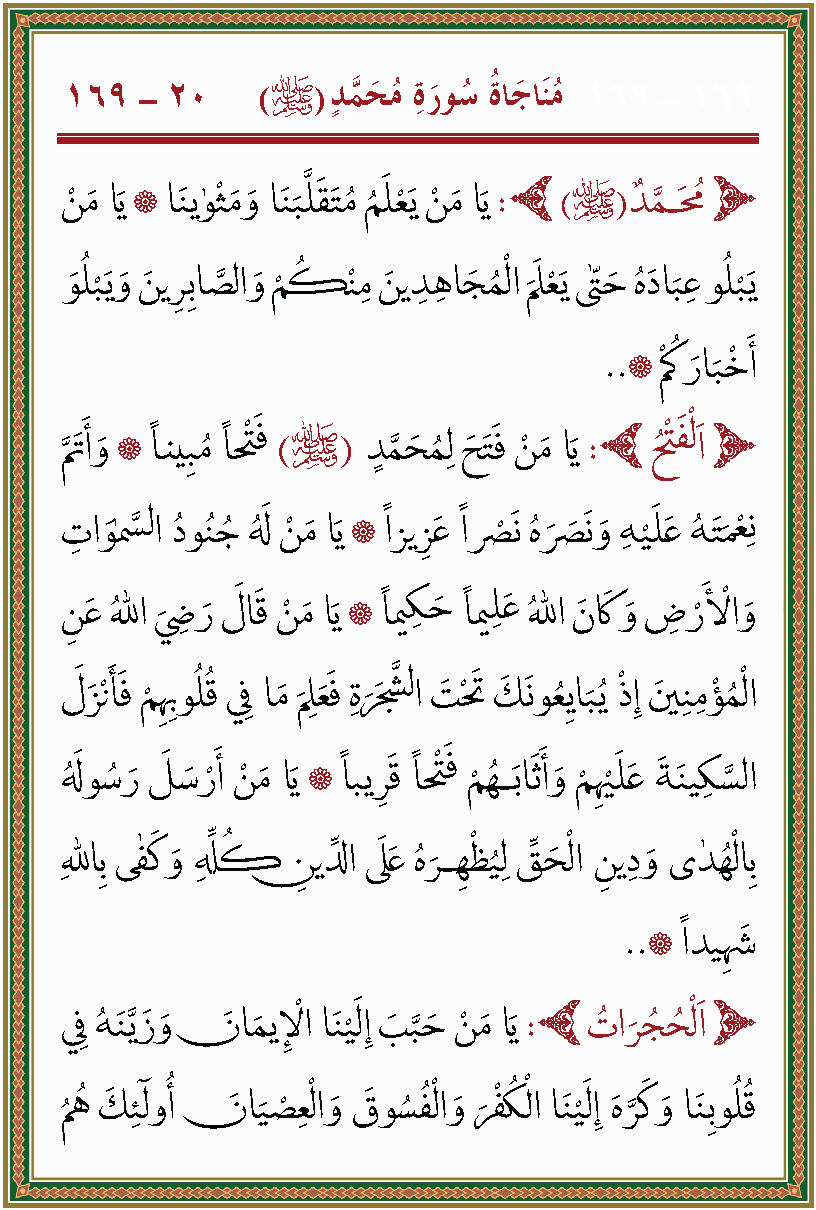 مُنَاجَاةُ سُورَةِ مُحَمَّدٍ (ﷺ) ٢٠ ـ ١٦٩
﴿ مُحَمَّدٌ (ﷺ) ﴾ : يَا مَنْ يَعْلَمُ مُتَقَلَّبَنَا وَمَثْوٰينَا ۞ يَا مَنْ
يَبْلُو عِبَادَهُ حَتّٰى يَعْلَمَ الْمُجَاهِدِينَ مِنْكُمْ وَالصَّابِرِينَ وَيَبْلُوَ
أَخْبَارَكُمْ ۞..
﴿ اَلْفَتْحُ ﴾ : يَا مَنْ فَتَحَ لِمُحَمَّدٍ (ﷺ) فَتْحاً مُبِيناً ۞ وَأَتَمَّ
نِعْمَتَهُ عَلَيْهِ وَنَصَرَهُ نَصْراً عَزِيزاً ۞ يَا مَنْ لَهُ جُنُودُ السَّمٰوَاتِ
وَالْأَرْضِ وَكَانَ اللهُ عَلِيماً حَكِيماً ۞ يَا مَنْ قَالَ رَضِيَ اللهُ عَنِ
الْمُؤْمِنِينَ إِذْ يُبَايِعُونَكَ تَحْتَ الشَّجَرَةِ فَعَلِمَ مَا فِي قُلُوبِهِمْ فَأَنْزَلَ
السَّكِينَةَ عَلَيْهِمْ وَأَثَابَـهُمْ فَتْحاً قَرِيباً ۞ يَا مَنْ أَرْسَلَ رَسُولَهُ
بِالْهُدٰى وَدِينِ الْحَقِّ لِيُظْهِـرَهُ عَلَى الدِّينِ كُلِّهِ وَكَفٰى بِاللهِ
شَهِيداً ۞..
﴿ اَلْحُجُرَاتُ ﴾ : يَا مَنْ حَبَّبَ إِلَيْنَا الْإِيمَانَ وَزَيَّنَهُ فِي
قُلُوبِنَا وَكَرَّهَ إِلَيْنَا الْكُفْرَ وَالْفُسُوقَ وَالْعِصْيَانَ أُولٓئِكَ هُمُ